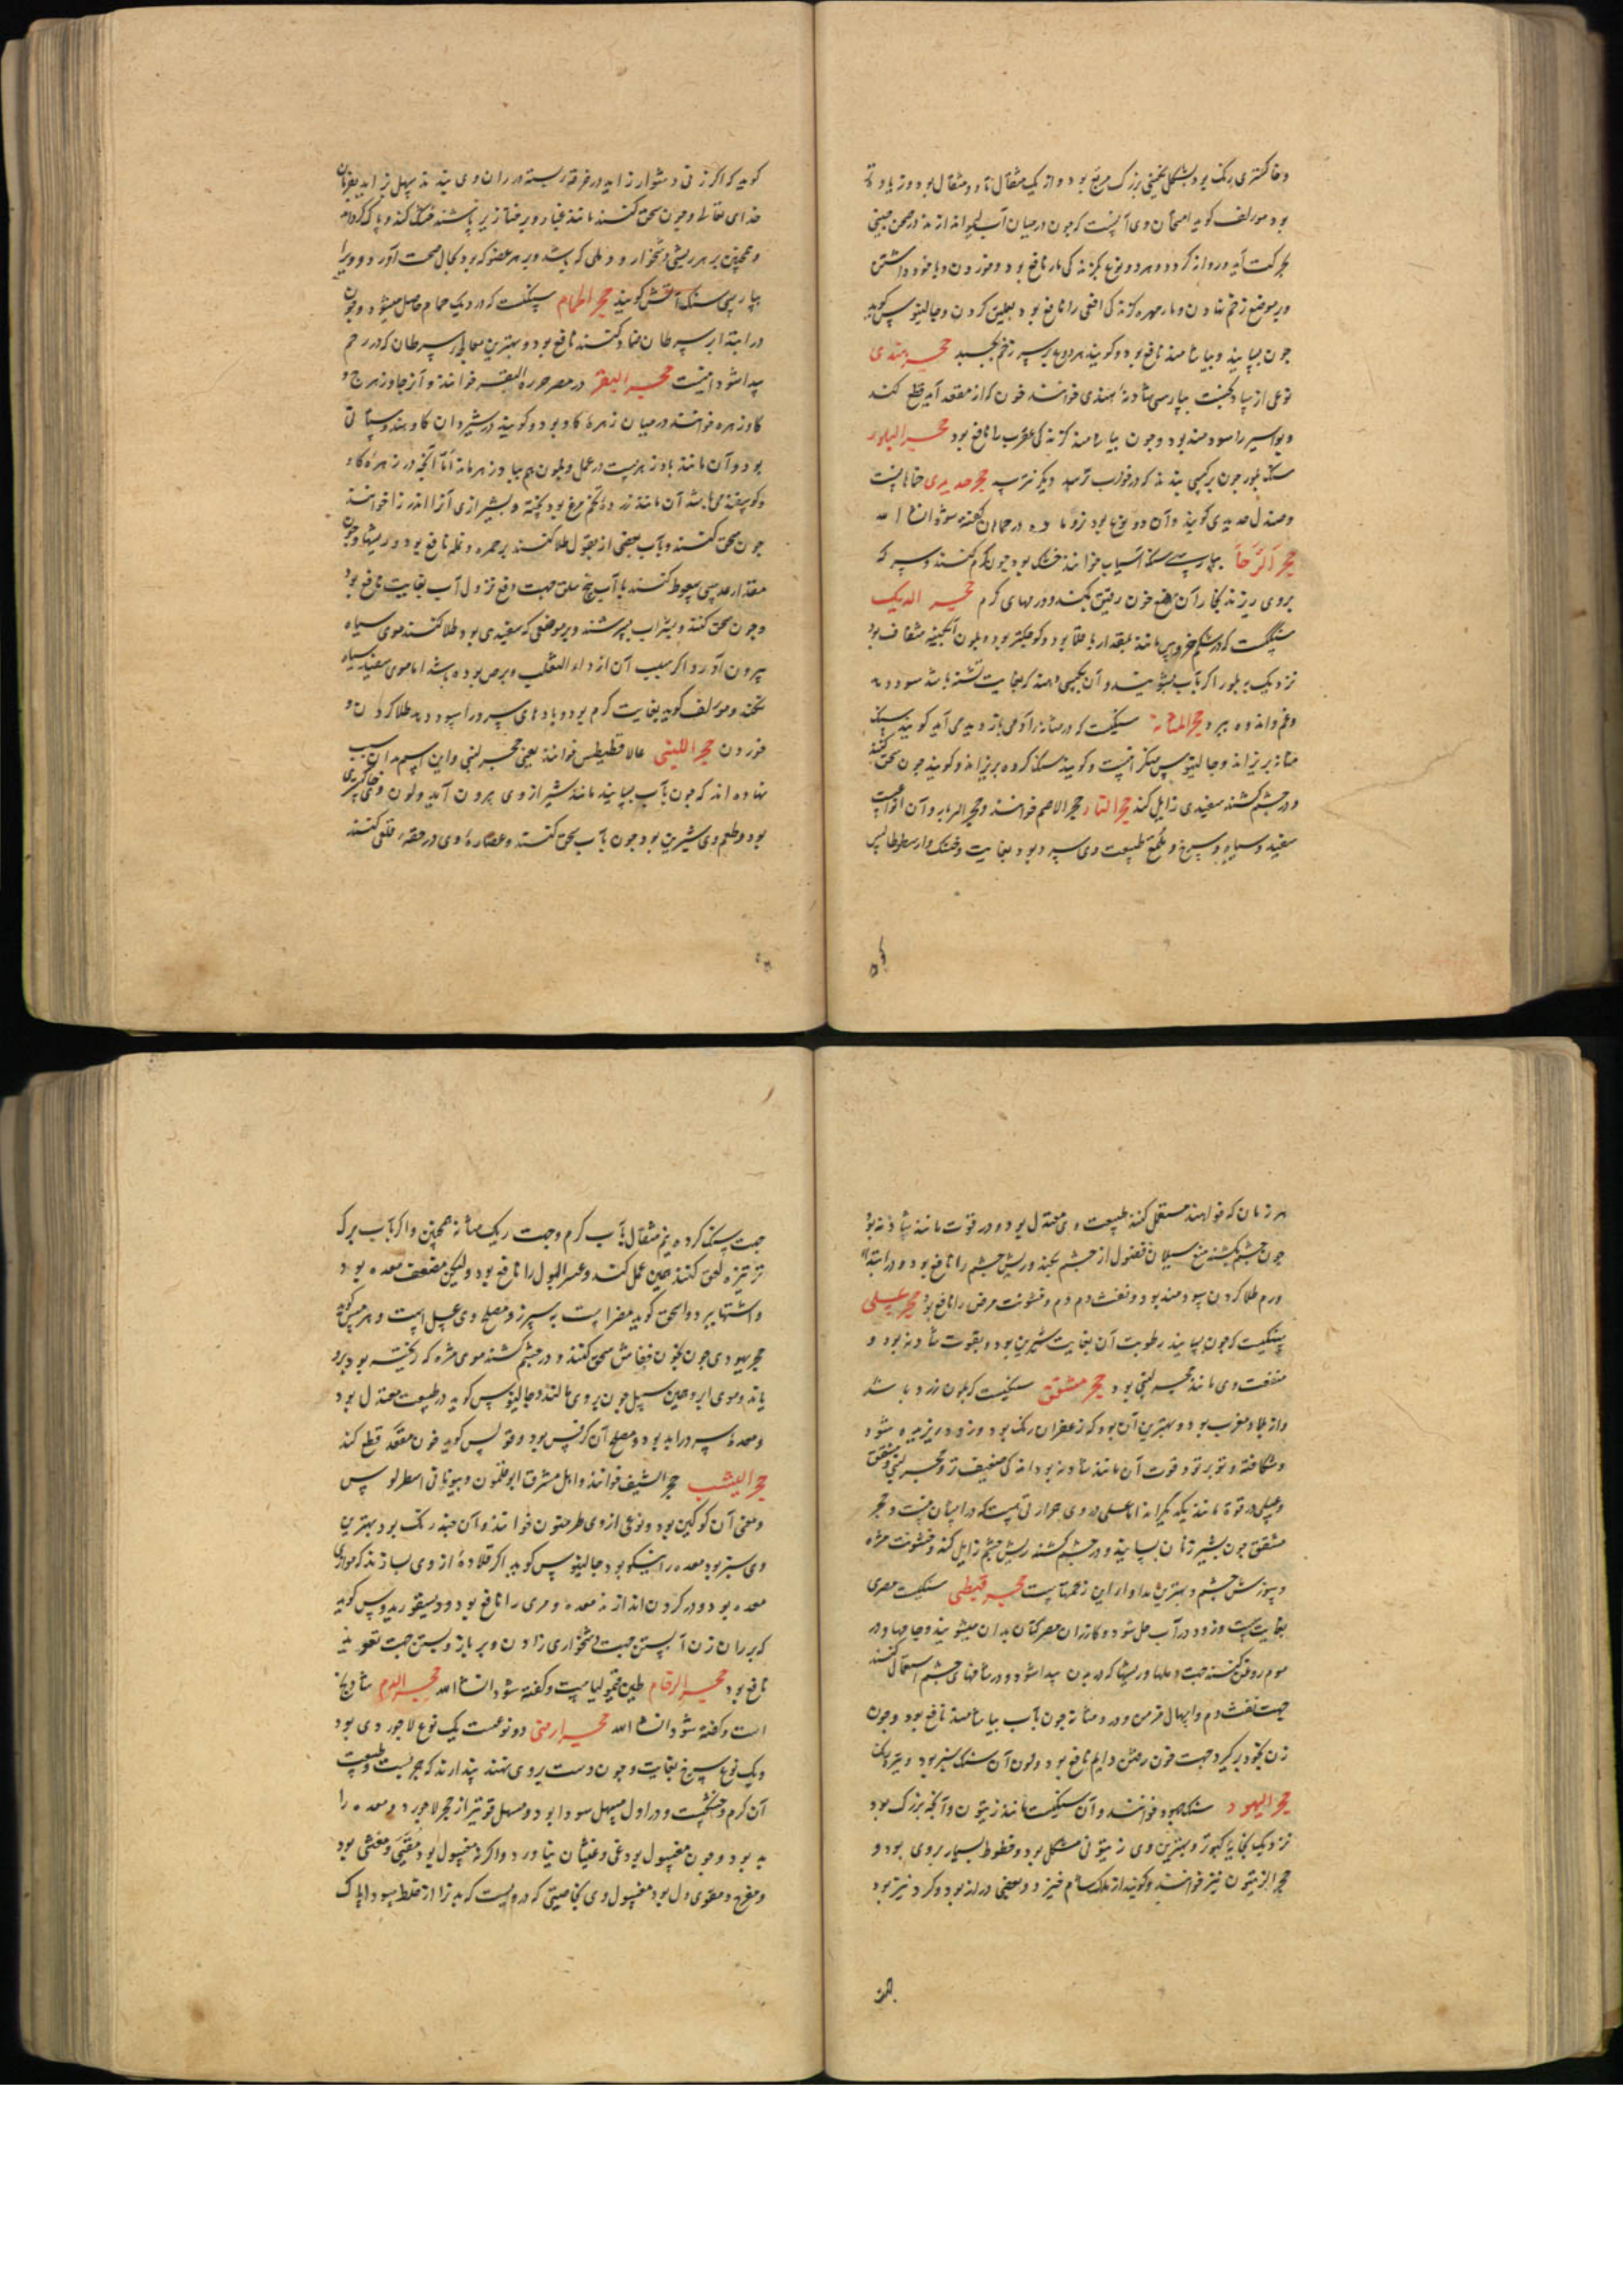 وخاکستری رنک بود بشکل نکینی بزرک مربع بود و از یک مثقال تا دو مثقال بود و زیادت
بود مولف کوید امتحان وی آنست که چون در میان آب لیمو اندازند در صحن چینی
بحرکت آید و روانه کردد و هر دو نوع کزندکی مار نافع بود و خوردن و با خود داشتن
و بر موضع زخم نهادن و مار مهره کزندکی افعی را نافع بود بتعلیق کردن و جالینوس کوید
چون بسایند و بیاشامند نافع بود و کویند هر دو نوع بر سر زخم بچسبد حجر هندی
نوعی از بپارسی شادنهٔ هندی خوانند خون که از مقعد آید قطع کند
و بواسیر را سودمند بود و چون بیاشامند کزندکی عقرب را نافع بود حجر البلور
سنک بلور چون بر کسی بندند که در خواب ترسد دیکر نترسد حجر حدیدی خماهانست
و صندل حدیدی کویند و آن دو نوع بود نر و ماده در خماهان کفته شود انشا الله
حجر الرحا بپارسی سنک آسیاب خوانند خشک بود چون کرم کنند و سرکه
بروی ریزند بخار آن منع خون رفتن بکند و ورمهای کرم حجر الدیک
سنکیست که در شکم خروس مانند بمقدار باقلا بود و کوچکتر بود و بلون آبکینه شفاف بود
نزدیک به بلور اکر بآب بشویند و آن بکسی دهند که بغایت تشنه باشد سود دهد
و غم و اندوه ببرد حجر المثانة سنکیست که در مثانهٔ آدمی بازدید می آید کویند سنک
مثانه بریزاند و جالینوس منکر اینست و کویند سنک کرده بریزاند و کویند چون سحق کنند
و در چشم کشند سفیدی زایل کند حجر النار حجر الاصم خوانند و حجر و آن انواعست
سفید و سیاه و سرخ و ملمع طبیعت وی سرد بود بغایت و خشک و ارسطوطالیس
کوید که اکر زنی دشوار زاید در خرقه بسته در ران وی بندند سهل زاید بفرمان
خدای تعالی و چون سحق کنند مانند غبار و بر خنازیر پاشند خشک کند و پاک کرداند
و همچنین بر هر ریشی دشخوار و دملی که باشد و بر هر عضو که بود بحال صحت آورد و ویرا
بپارسی سنک آتش کویند حجر الحمام سنکیست که در دیک حمام حاصل میشود و چون
در ابتداء سرطان ضماد کنند نافع بود و بهترین معالجه سرطان که در رحم
پیدا شود اینست حجر البقر در مصر خرزة البقر خوانند و آنرا جاوزهرج و
کاوزهره خوانند در میان زهرهٔ کاو بود و کویند در شیردان کاو هندوستانی
بود و آن مانند پادزهرست در عمل و بلون هم بپادزهر ماند اما آنچه در زهرهٔ کاو
و کوسفند می باشد آن مانند زردهٔ تخم مرغ بود پخته و بشیرازی آنرا اندرزا خوانند
چون سحق کنند و بآب بعضی از بقول طلا کنند بر حمره و نمله نافع بود و ریشها و چون
مقدار عدسی سعوط کنند با آب بیخ سلق جهت دفع نزول آب بغایت نافع بود
و چون سحق کنند و بشراب بسرشند و بر موضعی که سفیدی بود طلا کنند موی سیاه
بیرون آورد اکر سبب آن از داء الثعلب و برص بوده باشد اما موی سفید سیاه
نکند و مولف کوید بغایت کرم بود و بادهای سرد را سود دهد طلا کردن و
خوردن حجر اللبنی غالاقطیطس خوانند یعنی حجر لبنی و این اسم بدان سبب
نهاده اند که چون بآب بسایند مانند شیر از وی بیرون آید و لون وی خاکستری
بود و طعم وی شیرین بود چون بآب سحق کنند و عصارهٔ وی در حقه قلعی کنند
هر زمان که خواهند مستعمل کنند طبیعت وی معتدل بود و در قوت مانند شادنه بود
چون در چشم کشند منع سیلان فضول از چشم بکند و ریش چشم را نافع بود و در ابتداء
ورم طلا کردن سودمند بود و نفث دم و خشونت مرض را نافع بود حجر عسلی
سنکیست که چون بسایند رطوبت آن بغایت شیرین بود و بقوت شادنه بود و
منفعت وی مانند حجر لبنی بود حجر مشقق سنکیست که بلون زرد باشد
و از بلاد مغرب بود و بهترین آن بود که زعفران رنک بود و زود ریزیده شود
و شکافته و تو بر تو و قوت آن مانند شادنه بود اندکی ضعیف تر و حجر لبنی و مشقق
و عسلی در قوة مانند یکدیکراند اما عسلی در وی حرارتی هست که در ایشان نیست و حجر
مشقق چون بشیر زنان بسایند و در چشم کشند ریش چشم زایل کند و خشونت مژه
و سوزش چشم و بهترین مداوا این زحمتهاست حجر قبطی سنکیست مصری
بغایت سست و زود در آب حل شود و کازران مصر کتان بدان میشویند و جامها و در
موم روغن کنند جهت دملها و ریشها که در بدن پیدا شود و در شیافهای چشم استعمال کنند
جهت نفث دم و اسهال مزمن و درد مثانه چون بآب بیاشامند نافع بود و چون
زن بخود برکیرد جهت خون رفتن دایم نافع بود و لون آن سنک سبز بود و تیره رنک
حجر الیهود سنک جهود خوانند و آن سنکیست مانند زیتون و آنچه بزرک بود
نزدیک بخایهٔ کبوتر و بهترین وی زیتونی شکل بود و خطوط بسیار بروی بود و
حجر الزیتون نیز خوانند و کویند از ملک شام خیزد و بعضی دراز بود و کرد نیز بود
جهت سنک کرده نیم مثقال بآب کرم و جهت ریک مثانه همچنین و اکر بآب برک
ترتیزه لعق کنند همین عمل کند و عسر البول را نافع بود ولیکن مضعف معده بود
و اشتها ببرد و اسحق کوید مضر است به سپرز و مصلح وی عسل است و هرمس کوید
حجر یهودی چون بخون خفاش سحق کنند و در چشم کشند موی مژه که ریخته بود برو
یاند و موی ابرو همین سبیل چون بروی مالند و جالینوس کوید در طبیعت معتدل بود
و معدهٔ سرد را بد بود و مصلح آن کرفس بود و فولس کوید خون مقعد قطع کند
حجر الیشب حجر الشیف خوانند و اهل مشرق ابوقلمون و بیونانی اسطرلوس
و معنی آن کوکبین بود و نوعی از وی طرمنون خوانند و آن چند رنک بود بهترین
وی سبز بود معده را نیکو بود جالینوس کوید اکر قلادهٔ از وی بسازند که موازی
معده بود و در کردن اندازند معده و مری را نافع بود و دیسقوریدوس کوید
که بر ران زن آبستن جهت دشخواری زادن و بر بازو بستن جهت تعویذ
نافع بود حجر الرقام طین قیمولیاست و کفته شود انشاء الله حجر الدم شادنج
است و کفته شود انشاء الله حجر ارمنی دو نوعست یک نوع لاجوردی بود
و یک نوع سرخ بغایت و چون دست بروی نهند پندارند که حجر نیست و طبیعت
آن کرم و خشکست و در اول مسهل سودا بود و مسهل قویتر از حجر لاجورد و معده را
بد بود و چون مغسول بود غثی و غثیان نیاورد و اکر نامغسول بود مقیی و مغثی بود
و مفرح و مقوی دل بود مغسول وی بخاصیتی که درویست که بدنرا از خلط سودا پاک